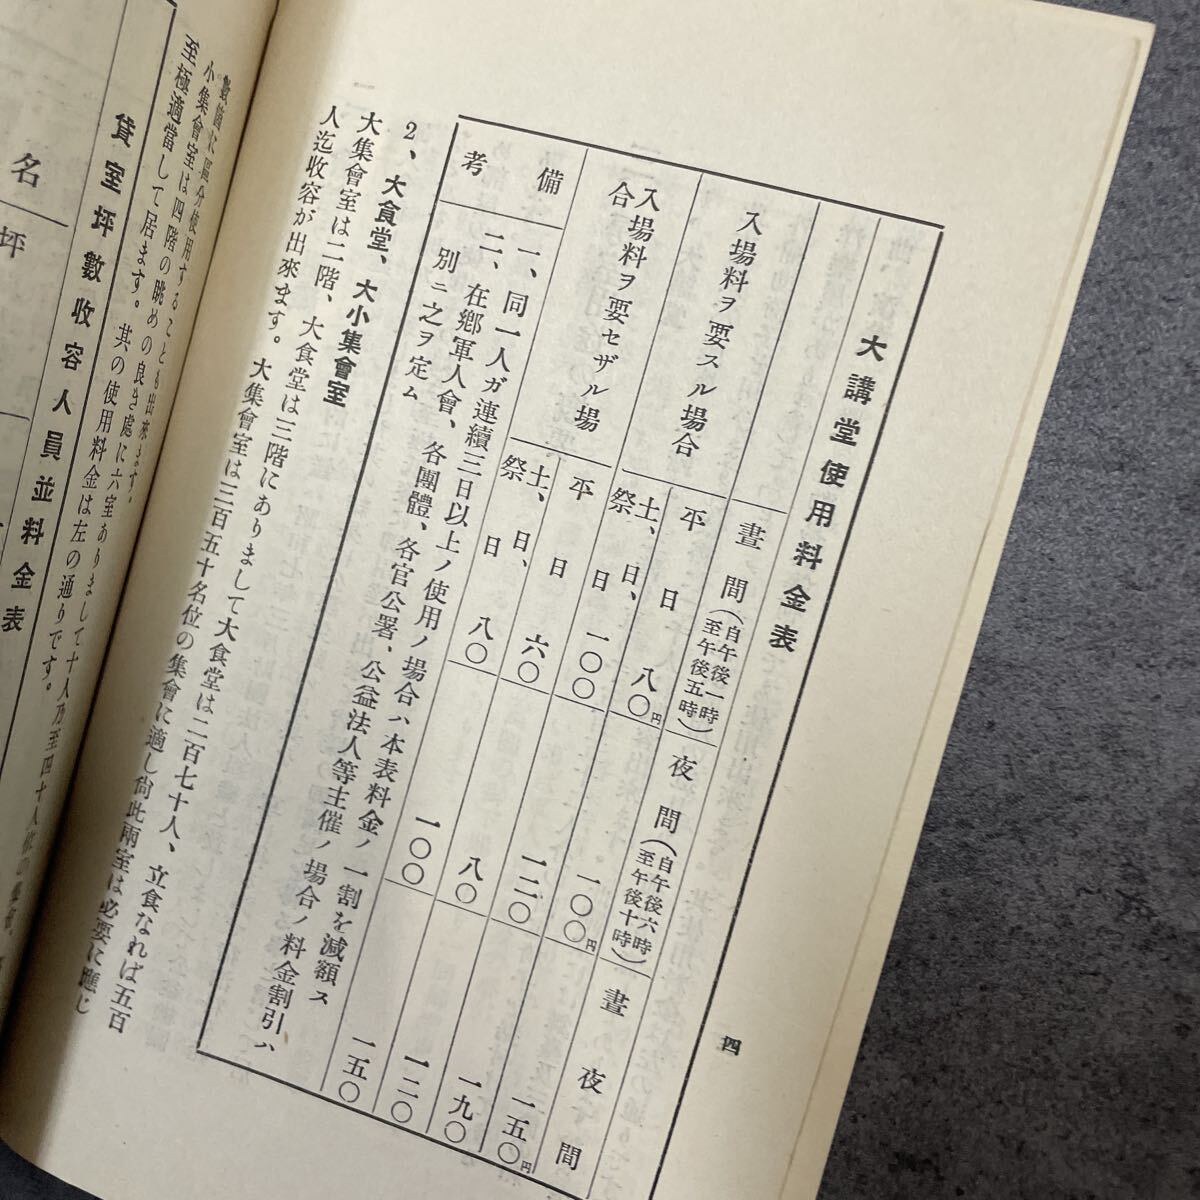 四
大講堂使用料金表
晝間(自午後一時至午後五時) 夜間(自午後六時至午後十時) 晝夜間
入場料ヲ要スル場合 平日 八〇円 一〇〇円 一五〇円
土、日、祭日 一〇〇 一二〇 一九〇
入場料ヲ要セザル場合 平日 六〇 八〇 一二〇
土、日、祭日 八〇 一〇〇 一五〇
備考
一、同一人ガ連續三日以上ノ使用ノ場合ハ本表料金ノ一割を減額ス
二、在鄉軍人會、各團體、各官公署、公益法人等主催ノ場合ノ料金割引ハ
別ニ之ヲ定ム
2、大食堂、大小集會室
大集會室は二階、大食堂は三階にありまして大食堂は二百七十人、立食なれば五百
人迄收容が出來ます。大集會室は三百五十名位の集會に適し尙此兩室は必要に應じ
數箇に區分使用することも出來ます。
小集會室は四階の眺めの良き處に六室ありまして十人乃至四十人位の
至極適當して居ます。其の使用料金は左の通りです。
貸室坪數收容人員並料金表
名
坪